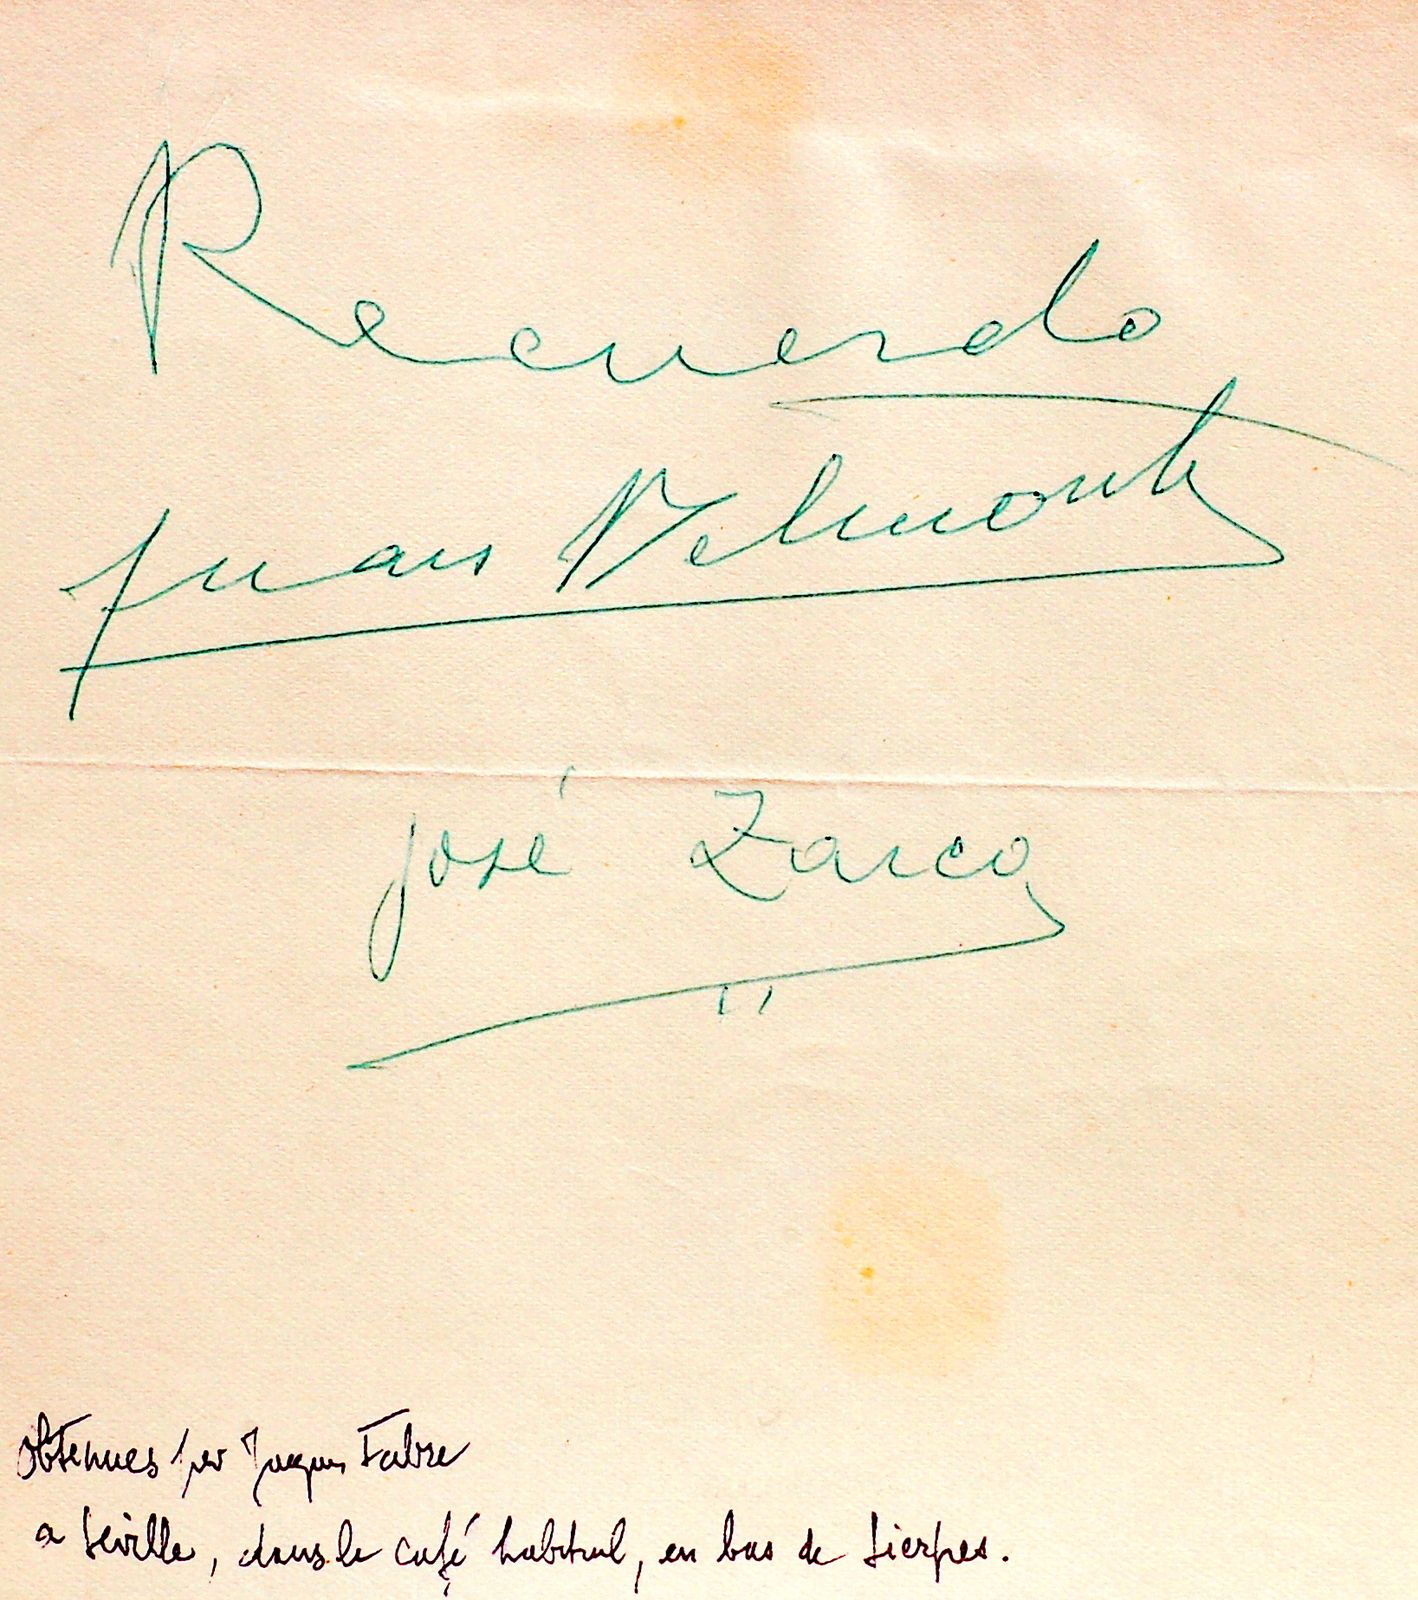 Recuerdo
Juan Belmonte
José Zarco
Obtenues par Jacques Fabre
a Séville, dans le café habituel, en bas de Sierpes.